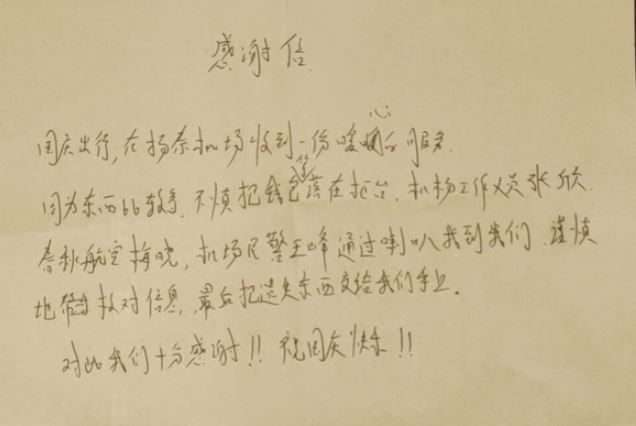 感谢信
国庆出行,在扬泰机场收到一份暖心的服务.
因为东西比较多,不慎把钱包落在柜台.机场工作人员张欣
春秋航空梅晓,机场民警王峰通过喇叭找到我们,谨慎
地核对信息,最后把遗失东西交给我们手上.
对此我们十分感谢!!祝国庆快乐!!